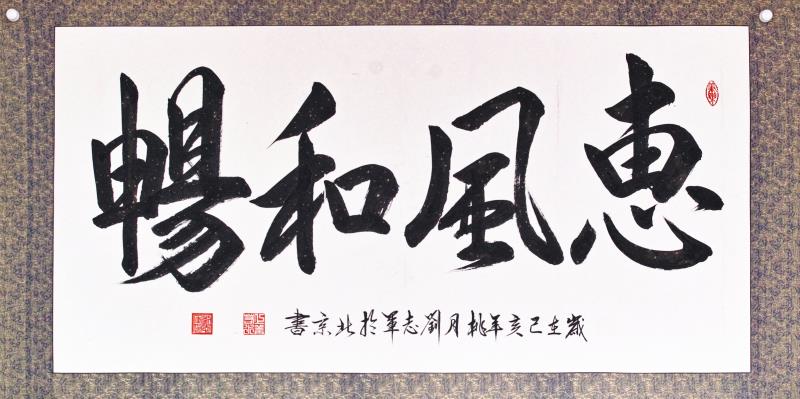 惠風和暢
歲在己亥年桃月劉志軍於北京書